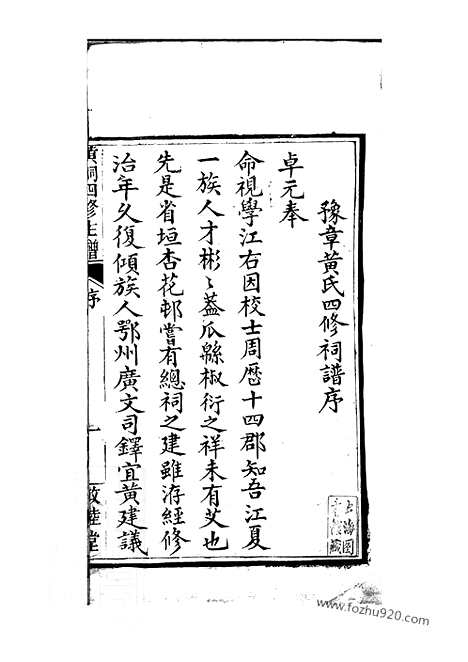 豫章黃氏四修祠譜序
卓元奉
命視學江右因校士周歷十四郡知吾江夏
一族人才彬〻葢瓜緜椒衍之祥未有艾也
先是省垣杏花邨嘗有總祠之建雖洊經修
治年久復傾族人鄂州廣文司鐸宜黃建議
黃祠四修主譜
序
一
敦睦堂
上海圖
書館藏
www.fozhu920.com